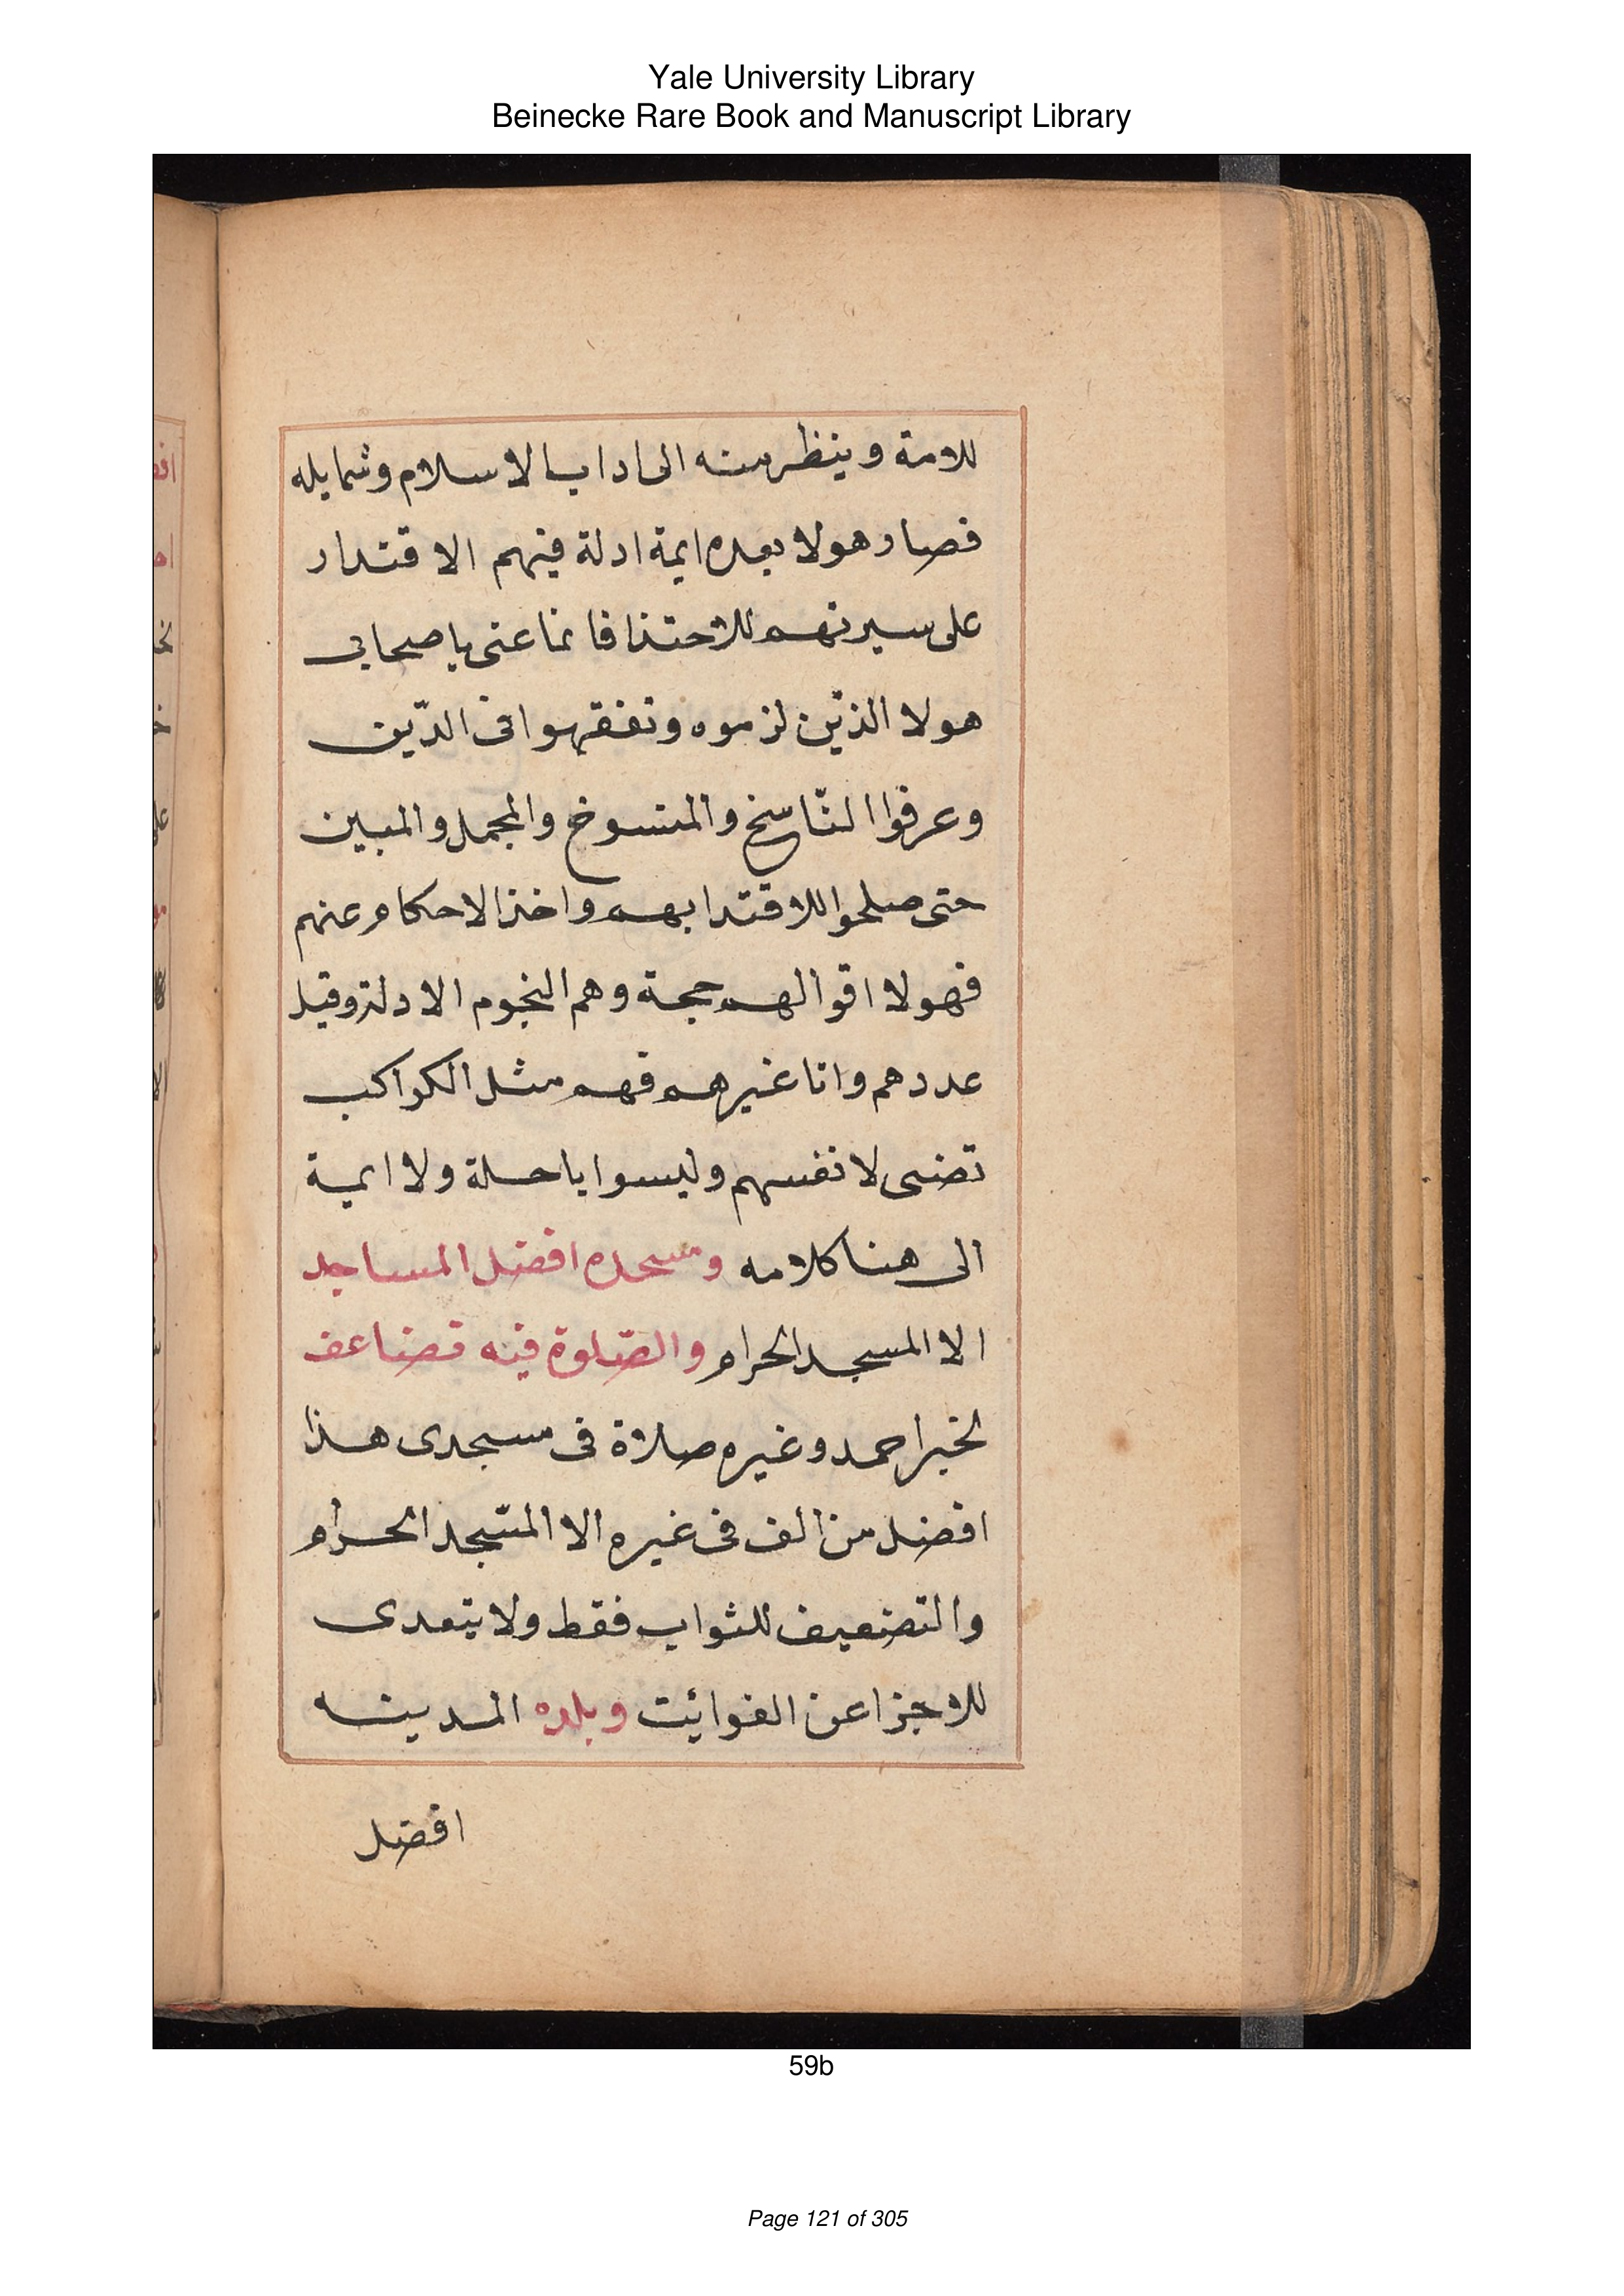 Yale University Library
Beinecke Rare Book and Manuscript Library
للامة وينظر منه الى اداب الاسلام وشمايله
فصار هولا بعده ايمة ادلة فيهم الاقتدار
على سيرتهم للاحتذا فانما عنى باصحابى
هولا الذين لزموه وتفقهوا فى الدّين
وعرفوا النّاسخ والمنسوخ والمجمل والمبين
حتى صلحوا للاقتدا بهم واخذ الاحكام عنهم
فهولا اقوالهم حجة وهم النجوم الادلة وقيل
عددهم وانا غيرهم فهم مثل الكواكب
تضى لانفسهم وليسوا باحلة ولا ايمة
الى هنا كلامه ومسجده افضل المساجد
الا المسجد الحرام والصّلوة فيه تضاعف
لخبر احمد وغيره صلاة فى مسجدى هذا
افضل من الف فى غيره الا المسجد الحرام
والتضعيف للثواب فقط ولا يتعدى
للاجزا عن الفوائت وبلده المدينه
افضل
59b
Page 121 of 305